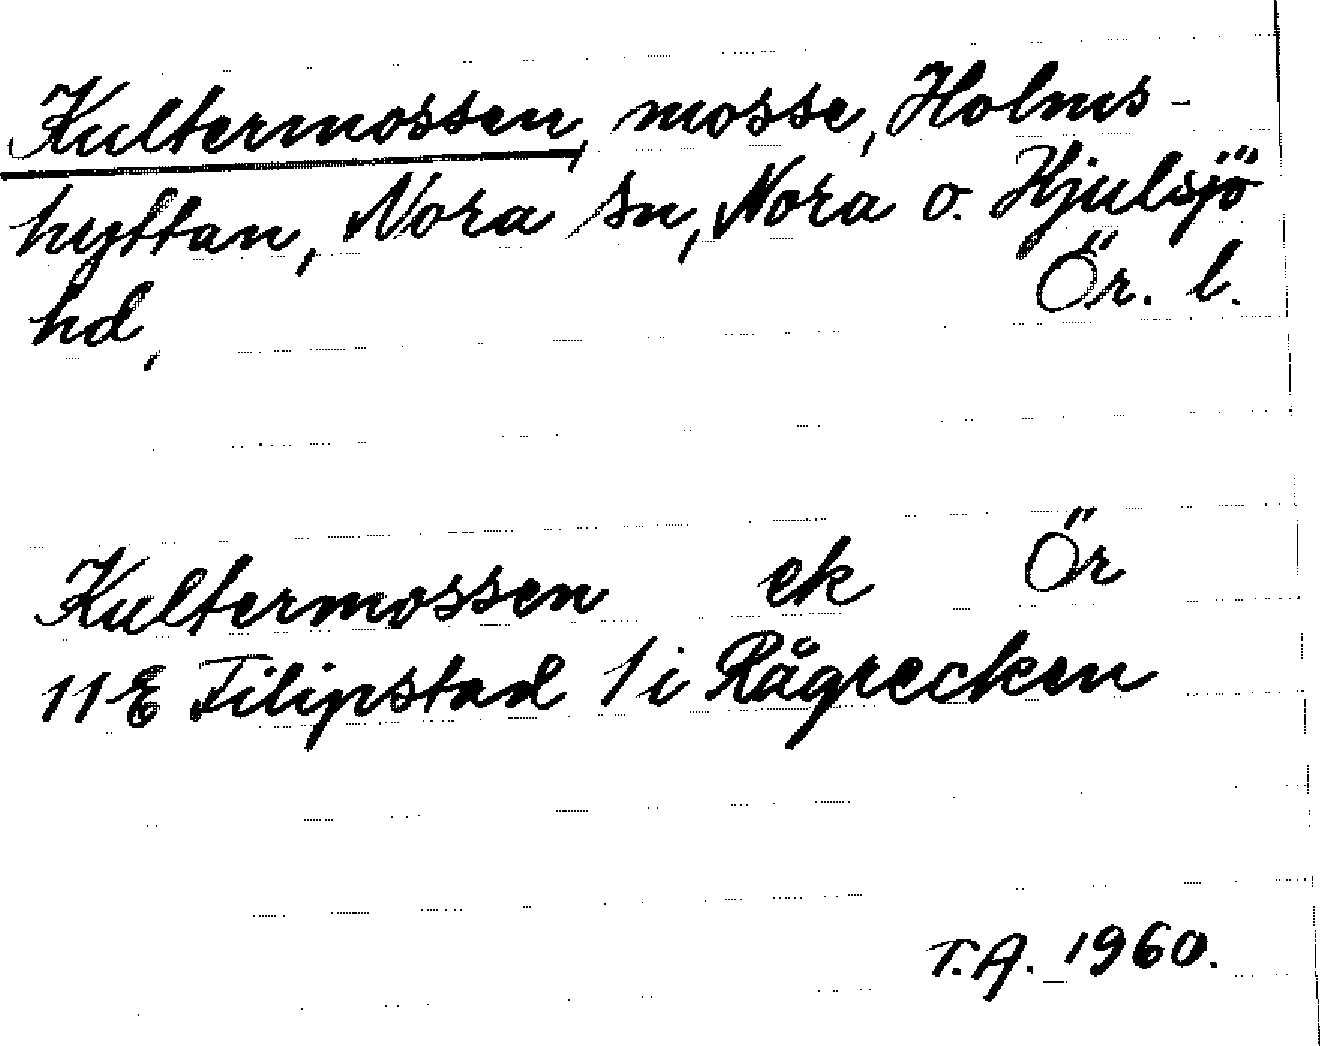 Kultermossen, mosse, Holms-
hyttan, Nora sn, Nora o. Hjulsjö
hd, Ör. l.
Kultermossen ek Ör
11E Filipstad 1i Rågrecken
T.A. 1960.